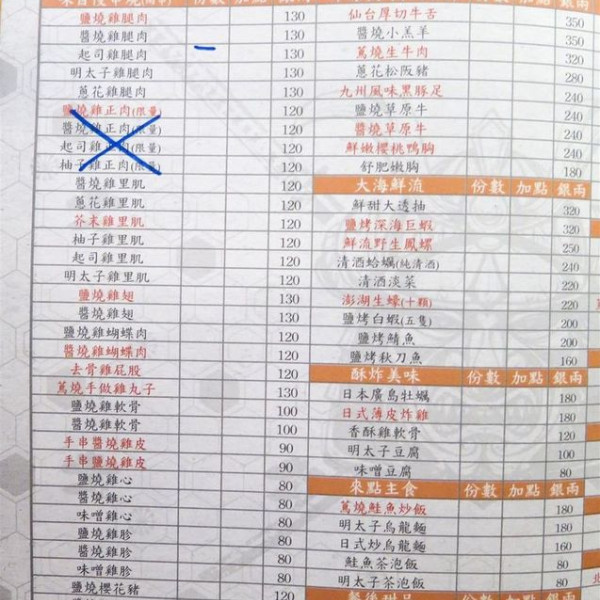 份數 加點 銀兩
鹽燒雞腿肉 130
醬燒雞腿肉 130
起司雞腿肉 130
明太子雞腿肉 130
蔥花雞腿肉 130
鹽燒雞正肉(限量) 120
醬燒雞正肉(限量) 120
起司雞正肉(限量) 120
柚子雞正肉(限量) 120
醬燒雞里肌 120
蔥花雞里肌 120
芥末雞里肌 120
柚子雞里肌 120
起司雞里肌 120
明太子雞里肌 120
鹽燒雞翅 130
醬燒雞翅 130
鹽燒雞蝴蝶肉 120
醬燒雞蝴蝶肉 120
去骨雞屁股 120
蔦燒手做雞丸子 130
鹽燒雞軟骨 100
醬燒雞軟骨 100
手串醬燒雞皮 90
手串鹽燒雞皮 90
鹽燒雞心 80
醬燒雞心 80
味噌雞心 80
鹽燒雞胗 80
醬燒雞胗 80
味噌雞胗 80
鹽燒櫻花豬 120
仙台厚切牛舌 350
醬燒小羔羊 350
蔦燒生牛肉 320
蔥花松阪豬 280
九州風味黑豚足 240
鹽燒草原牛 240
醬燒草原牛 240
鮮嫩櫻桃鴨胸 240
舒肥嫩胸 180
大海鮮流 份數 加點 銀兩
鮮甜大透抽 320
鹽烤深海巨蝦 320
鮮流野生鳳螺 250
清酒蛤蠣(純清酒) 240
清酒淡菜 220
澎湖生蠔(十顆) 220
鹽烤白蝦(五隻) 200
鹽烤鯖魚 200
鹽烤秋刀魚 160
酥炸美味 份數 加點 銀兩
日本廣島牡蠣 180
日式薄皮炸雞 180
香酥雞軟骨 120
明太子豆腐 100
味噌豆腐 80
來點主食 份數 加點 銀兩
蔦燒鮭魚炒飯 180
明太子烏龍麵 180
日式炒烏龍麵 160
鮭魚茶泡飯 80
明太子茶泡飯 80
餐後甜品 份數 加點 銀兩